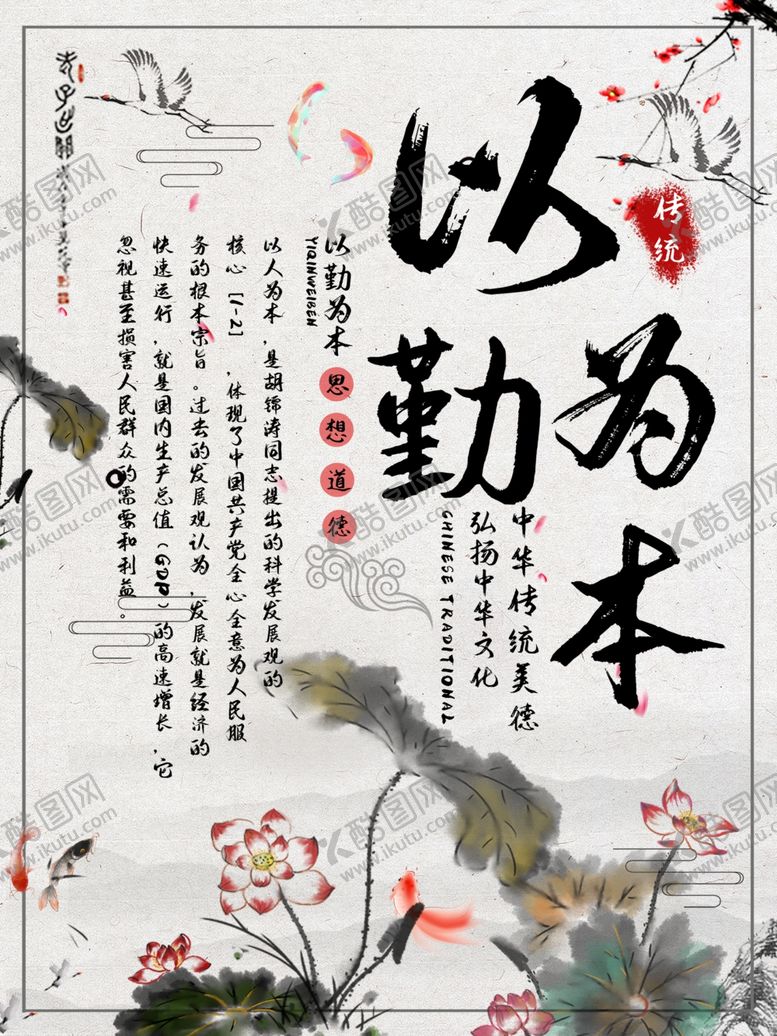 传统
以勤
为本
中华传统美德
弘扬中华文化
CHINESE TRADITIONAL
以勤为本
思想道德
YIQINWEIBEN
以人为本，是胡锦涛同志提出的科学发展观的
核心[1-2]，体现了中国共产党全心全意为人民服
务的根本宗旨。过去的发展观认为，发展就是经济的
快速运行，就是国内生产总值（GDP）的高速增长，它
忽视甚至损害人民群众的需要和利益。
酷图网
www.ikutu.com